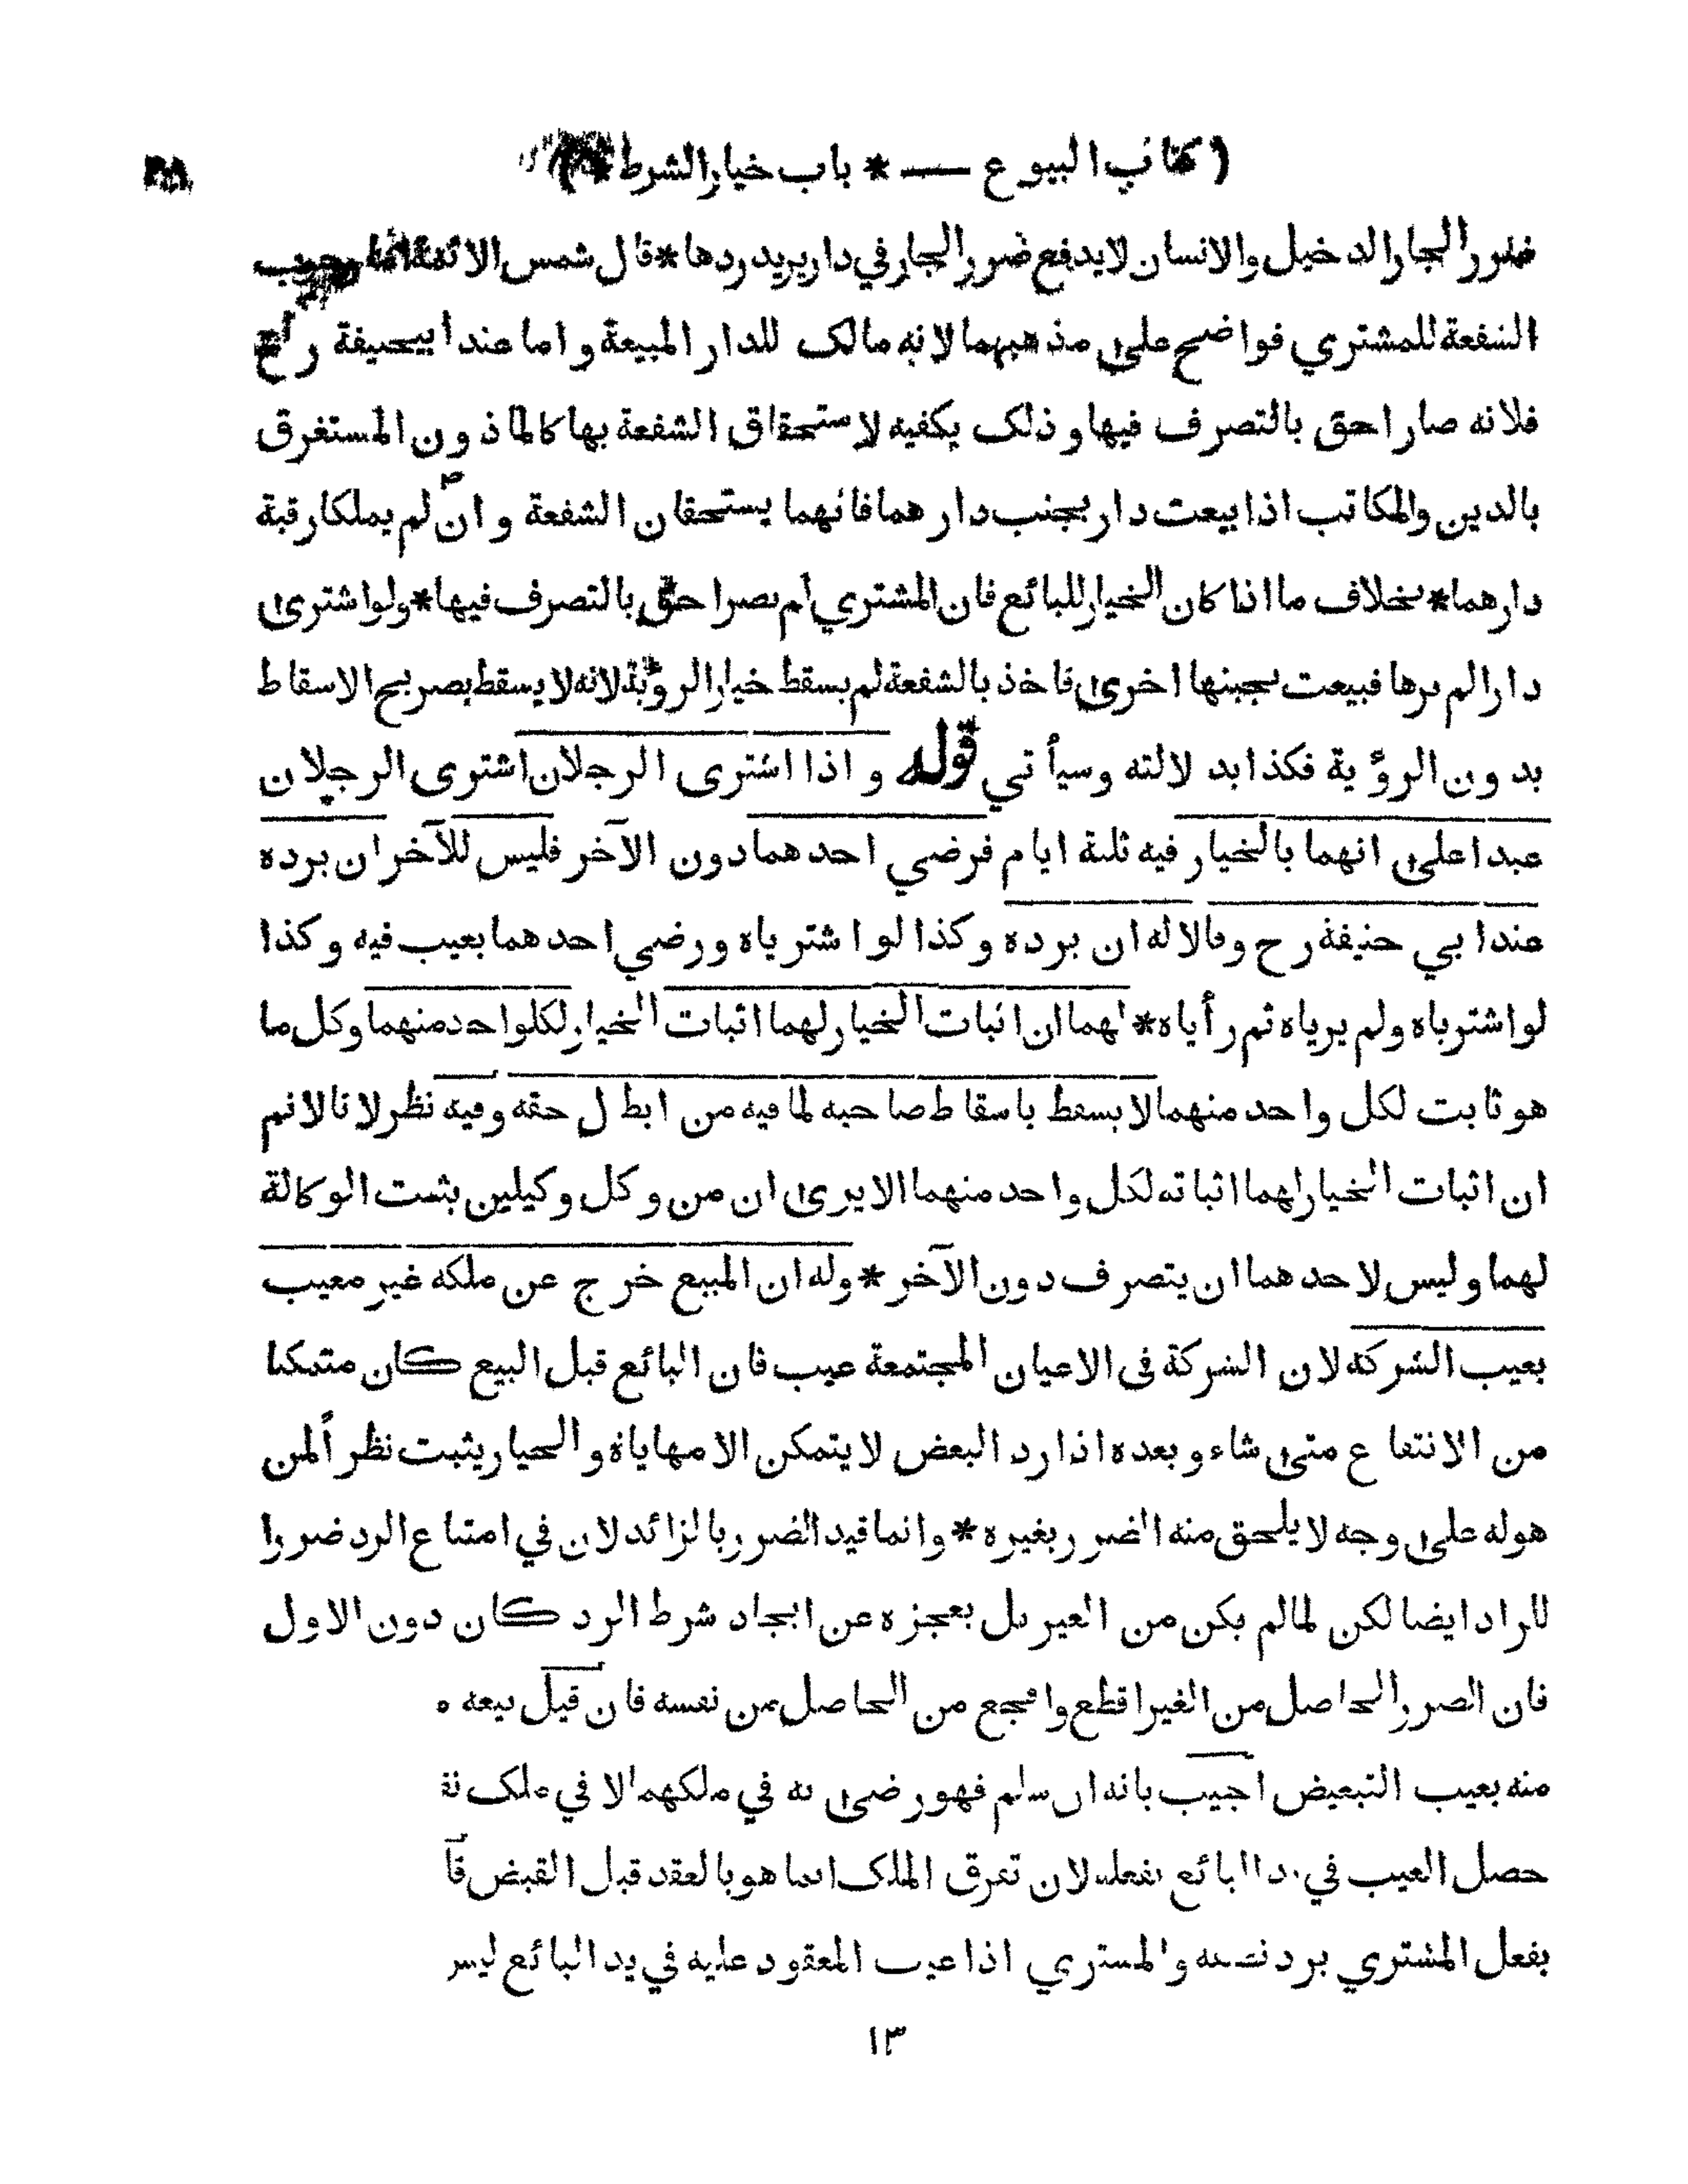 ( كتاب البيوع — * باب خيار الشرط * )
ضرر الجار الدخيل والانسان لا يدفع ضرر الجار في دار يريد ردها * قال شمس الائمة اما وجوب
الشفعة للمشتري فواضح على مذهبهما لانه مالك للدار المبيعة واما عند ابيحنيفة رح
فلانه صار احق بالتصرف فيها وذلك يكفيه لاستحقاق الشفعة بها كالماذون المستغرق
بالدين والمكاتب اذا بيعت دار بجنب دارهما فانهما يستحقان الشفعة وان لم يملكا رقبة
دارهما * بخلاف ما اذا كان الخيار للبائع فان المشتري لم يصر احق بالتصرف فيها * ولو اشترى
دارا لم يرها فبيعت بجبنها اخرى فاخذ بالشفعة لم يسقط خيار الرؤية لانه لا يسقط بصريح الاسقاط
بدون الرؤية فكذا بدلالته وسيأتي قوله واذا اشترى الرجلان اشترى الرجلان
عبدا على انهما بالخيار فيه ثلثة ايام فرضي احدهما دون الآخر فليس للآخر ان يرده
عند ابي حنيفة رح وقالا له ان يرده وكذا لو اشترياه ورضي احدهما بعيب فيه وكذا
لو اشترياه ولم يرياه ثم رأياه * لهما ان اثبات الخيار لهما اثبات الخيار لكل واحد منهما وكل ما
هو ثابت لكل واحد منهما لا يسقط باسقاط صاحبه لما فيه من ابطال حقه وفيه نظر لانا لا نم
ان اثبات الخيار لهما اثباته لكل واحد منهما الا يرى ان من وكل وكيلين يثبت الوكالة
لهما وليس لاحدهما ان يتصرف دون الآخر * وله ان المبيع خرج عن ملكه غير معيب
بعيب الشركة لان الشركة فى الاعيان المجتمعة عيب فان البائع قبل البيع كان متمكنا
من الانتفاع متى شاء وبعده اذا رد البعض لا يتمكن الا مهاياة والخيار يثبت نظراً لمن
هوله على وجه لا يلحق منه الضرر بغيره * وانما قيد الضرر بالزائد لان في امتناع الرد ضررا
للراد ايضا لكن لما لم يكن من الغير بل بعجزه عن ايجاد شرط الرد كان دون الاول
فان الضرر الحاصل من الغير اقطع وافجع من الحاصل من نفسه فان قيل بيعه
منه بعيب التبعيض اجيب بانه ان سلم فهو رضى به في ملكهما لا في ملك
حصل العيب في يد البائع بفعله لان تفرق الملك انما هو بالعقد قبل القبض
بفعل المشتري برد نصفه والمشتري اذا عيب المعقود عليه في يد البائع ليس
١٣